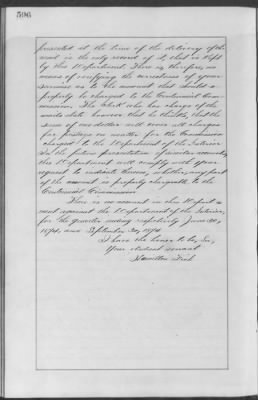 596
presented at the time of the delivery of the
mail is the only record of it, that is kept
by this Department. There is, therefore, no
means of verifying the correctness of your
surmises as to the amount that should
properly be charged to the Centennial Com-
mission. The clerk who has charge of the
mails states however that he thinks, that the
sum of one dollar will cover all charges
for postage on matter for the Commission
charged to the Department of the Interior
In the future presentation of similar accounts,
this Department will comply with your
request to indicate thereon, whether, any part
of the amount is properly chargeable to the
Centennial Commission
There is no account in this Depart
ment against the Department of the Interior,
for the quarter ending respectively June 30,
1874, and September 30, 1874
I have the honor to be, Sir,
Your obedient servant
Hamilton Fish